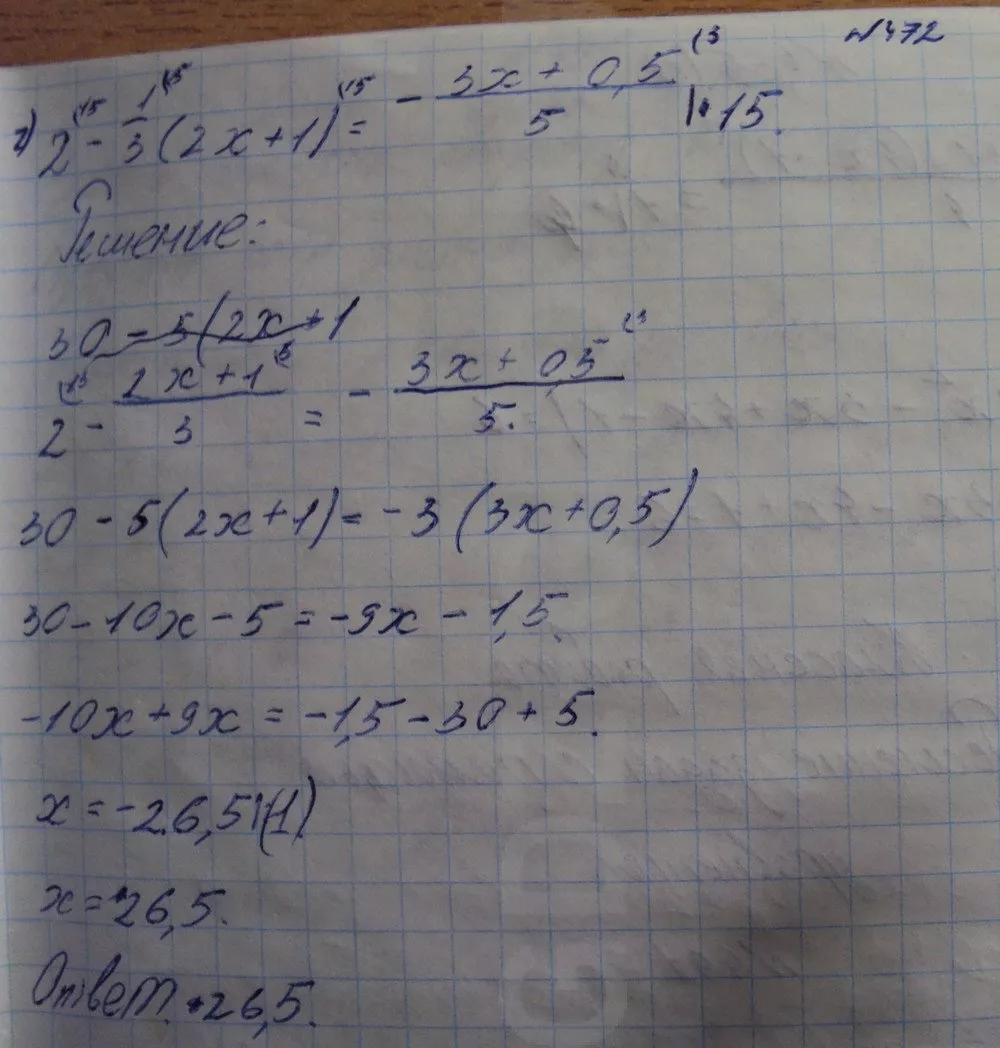 №472
г) 2 - 1/3 (2x+1) = - (3x + 0,5)/5 |·15.
Решение:
30 - 5(2x+1
2 - (2x+1)/3 = - (3x + 0,5)/5.
30 - 5(2x+1) = -3(3x+0,5)
30-10x-5 = -9x - 1,5.
-10x+9x = -1,5-30+5.
x = -26,5:(-1)
x = 26,5.
Ответ. 26,5.